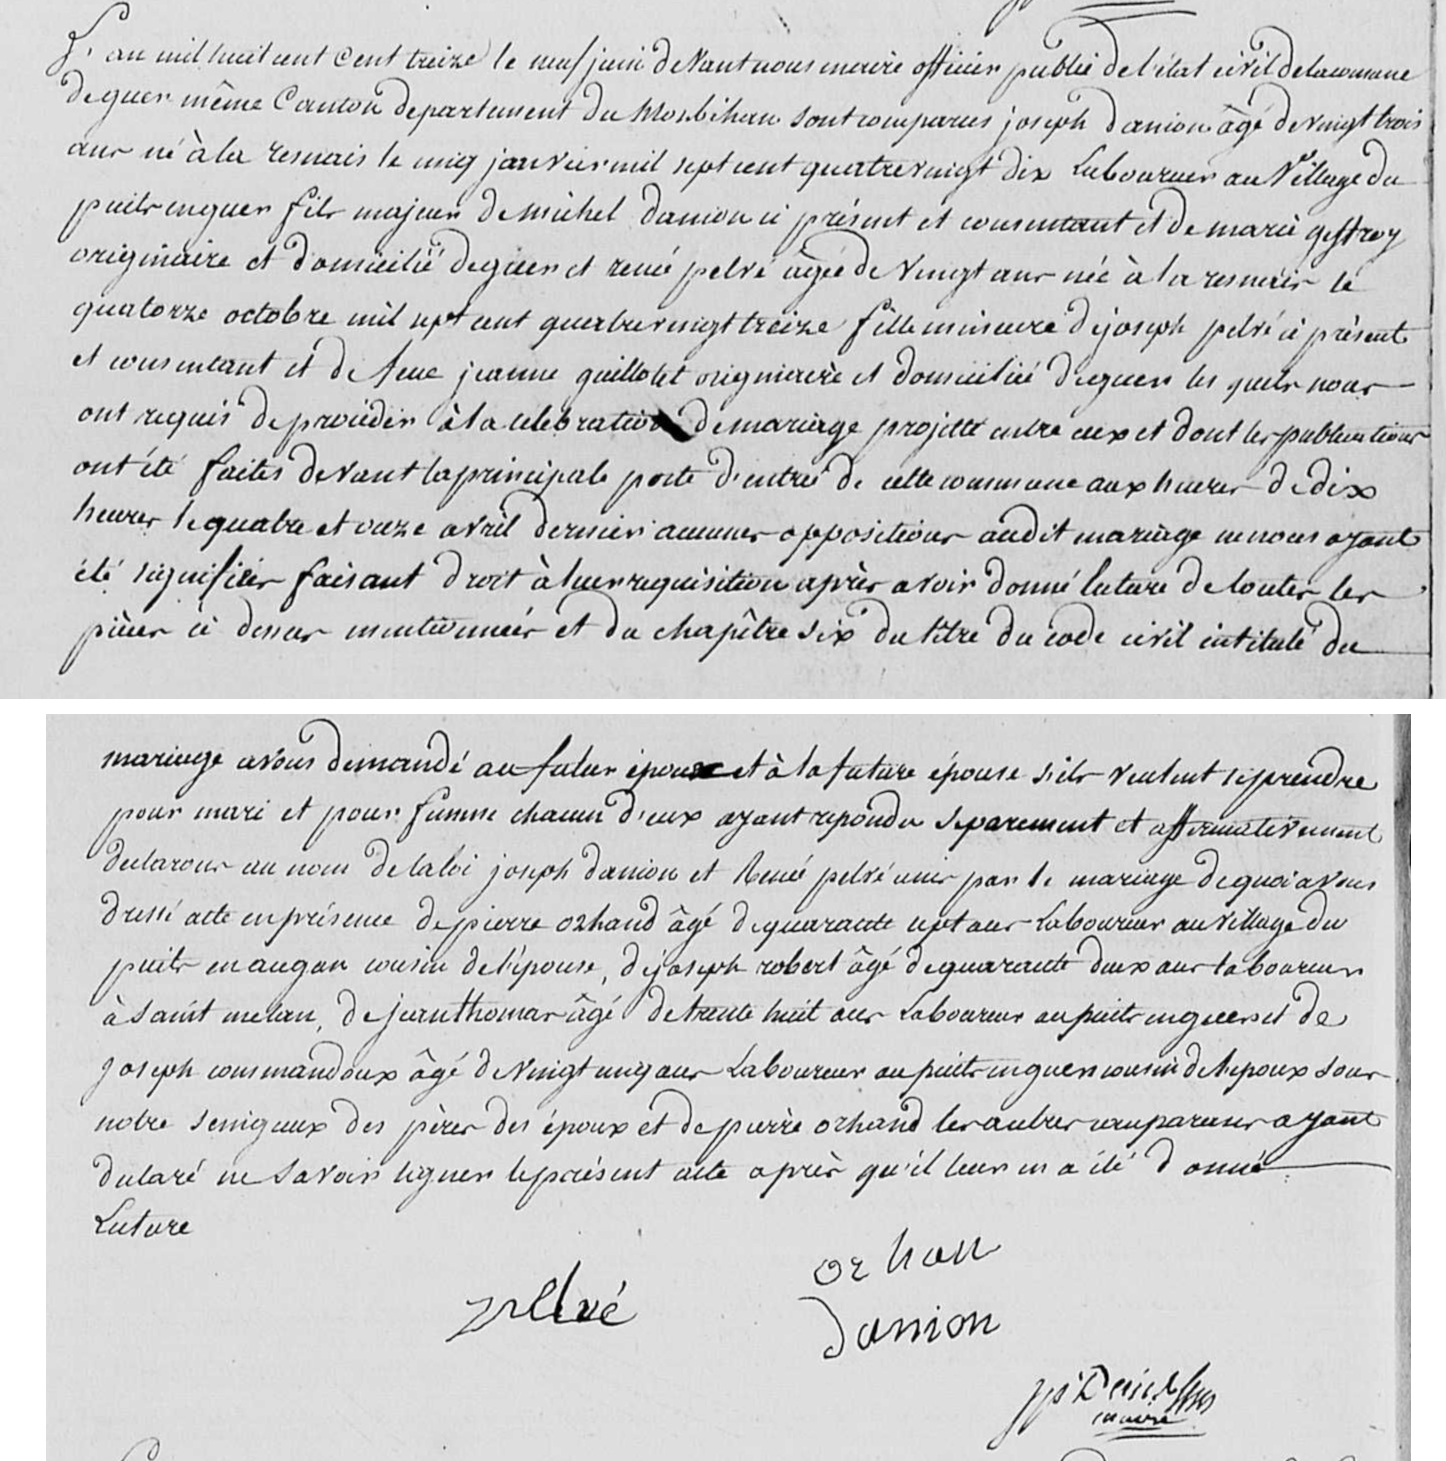 L'an mil huit cent treize le neuf juin devant nous maire officier public de l'état civil de la comune
de guer même Canton departement du Morbihan sont comparus joseph danion âgé de vingt trois
ans né à la resnais le cinq janvier mil sept cent quatrevingt dix Laboureur au Village du
puits en guer fils majeur de michel danion ci présent et consentant et de marie geffroy
originaire et domicilié de guer et rené pelvé âgée de vingt ans née à la resnais le
quatorze octobre mil sept cent quatrevingt treize fille mineure de joseph pelvé ci présent
et consentant et de feue jeanne guillotet originaire et domiciliée de guer les quels nous
ont requis de procéder à la celebration de mariage projetté entre eux et dont les publications
ont été faites devant la principale porte d'entrée de cette commune aux heures de dix
heures le quatre et onze avril dernier aucunes oppositions audit mariage ne nous ayant
été signifiées faisant droit à leur requisition après avoir donné lecture de toutes les
pièces ci dessus mentionnées et du chapître six du titre du code civil intitulé du
mariage avons demandé au futur époux et à la future épouse s'ils veulent se prendre
pour mari et pour femme chacun d'eux ayant repondu separement et affirmativement
declarons au nom de la loi joseph danion et Renée pelvé unis par le mariage de quoi avons
dressé acte en présence de pierre orhand âgé de quarante sept ans Laboureur au village du
puits en augan cousin de l'épouse, de joseph robert âgé de quarante deux ans laboureur
à saint melan, de jean thomas âgé de trente huit ans Laboureur au puits en guer et de
joseph commandoux âgé de vingt cinq ans Laboureur au puits en guer cousin de l'epoux sous
notre seing eux des pères des époux et de pierre orhand les autres comparans ayant
declaré ne savoir signer le présent acte après qu'il leur en a été donné
Lecture
pellvé
orhan
danion
maire